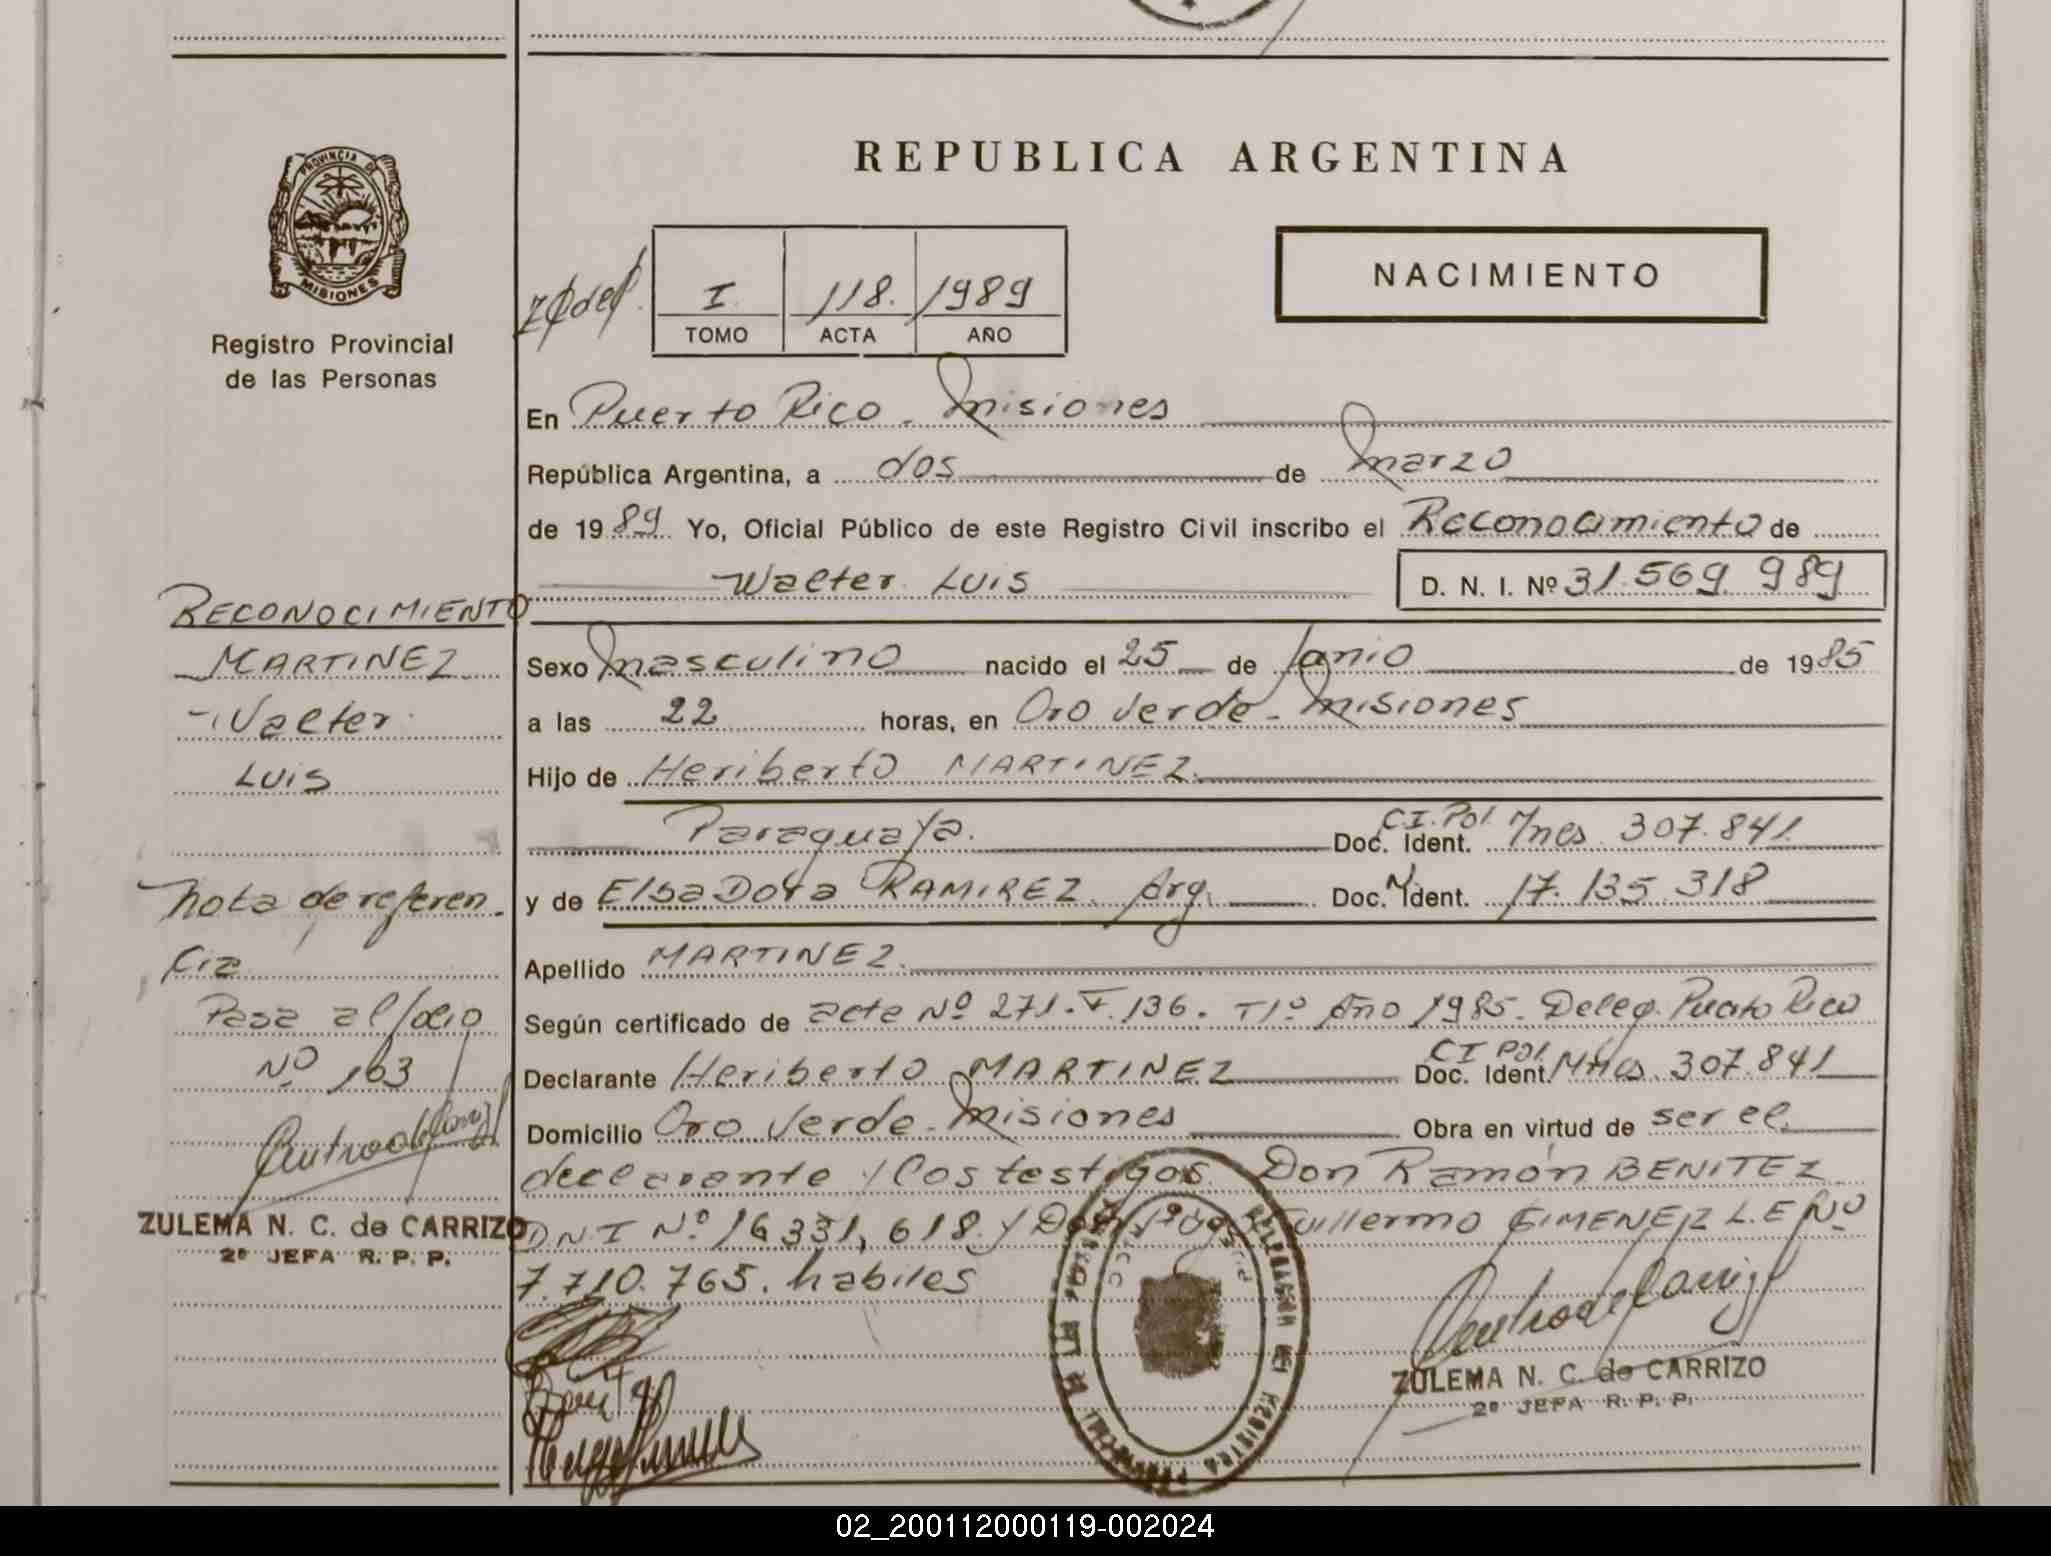 PROVINCIA DE
MISIONES
Registro Provincial
de las Personas
RECONOCIMIENTO
MARTINEZ
Walter
LUIS
Nota de referen
cia
Pasa al folio
Nº 163
ZULEMA N. C. de CARRIZO
2º JEFA R. P. P.
REPUBLICA ARGENTINA
I 118. 1989
TOMO ACTA AÑO
NACIMIENTO
En Puerto Rico - Misiones
República Argentina, a dos de Marzo
de 1989 Yo, Oficial Público de este Registro Civil inscribo el Reconocimiento de
Walter LUIS D. N. I. Nº 31.569.989
Sexo Masculino nacido el 25 de Junio de 1985
a las 22 horas, en Oro Verde - Misiones
Hijo de Heriberto MARTINEZ
Paraguaya. Doc. Ident. C.I. Pol. Mnes 307.841
y de Elsa Dora RAMIREZ Arg. Doc. Ident. 17.135.318
Apellido MARTINEZ.
Según certificado de acta Nº 271. F. 136. T1º Año 1985. Deleg. Puerto Rico
Declarante Heriberto MARTINEZ Doc. Ident. CI Pol. Mnes 307.841
Domicilio Oro Verde - Misiones Obra en virtud de ser el
declarante y los testigos Don Ramón BENITEZ
D.N.I Nº 16.331,618. y Don Guillermo GIMENEZ L.E Nº
7.710.765. habiles
ZULEMA N. C. de CARRIZO
2º JEFA R. P. P.
02_200112000119-002024